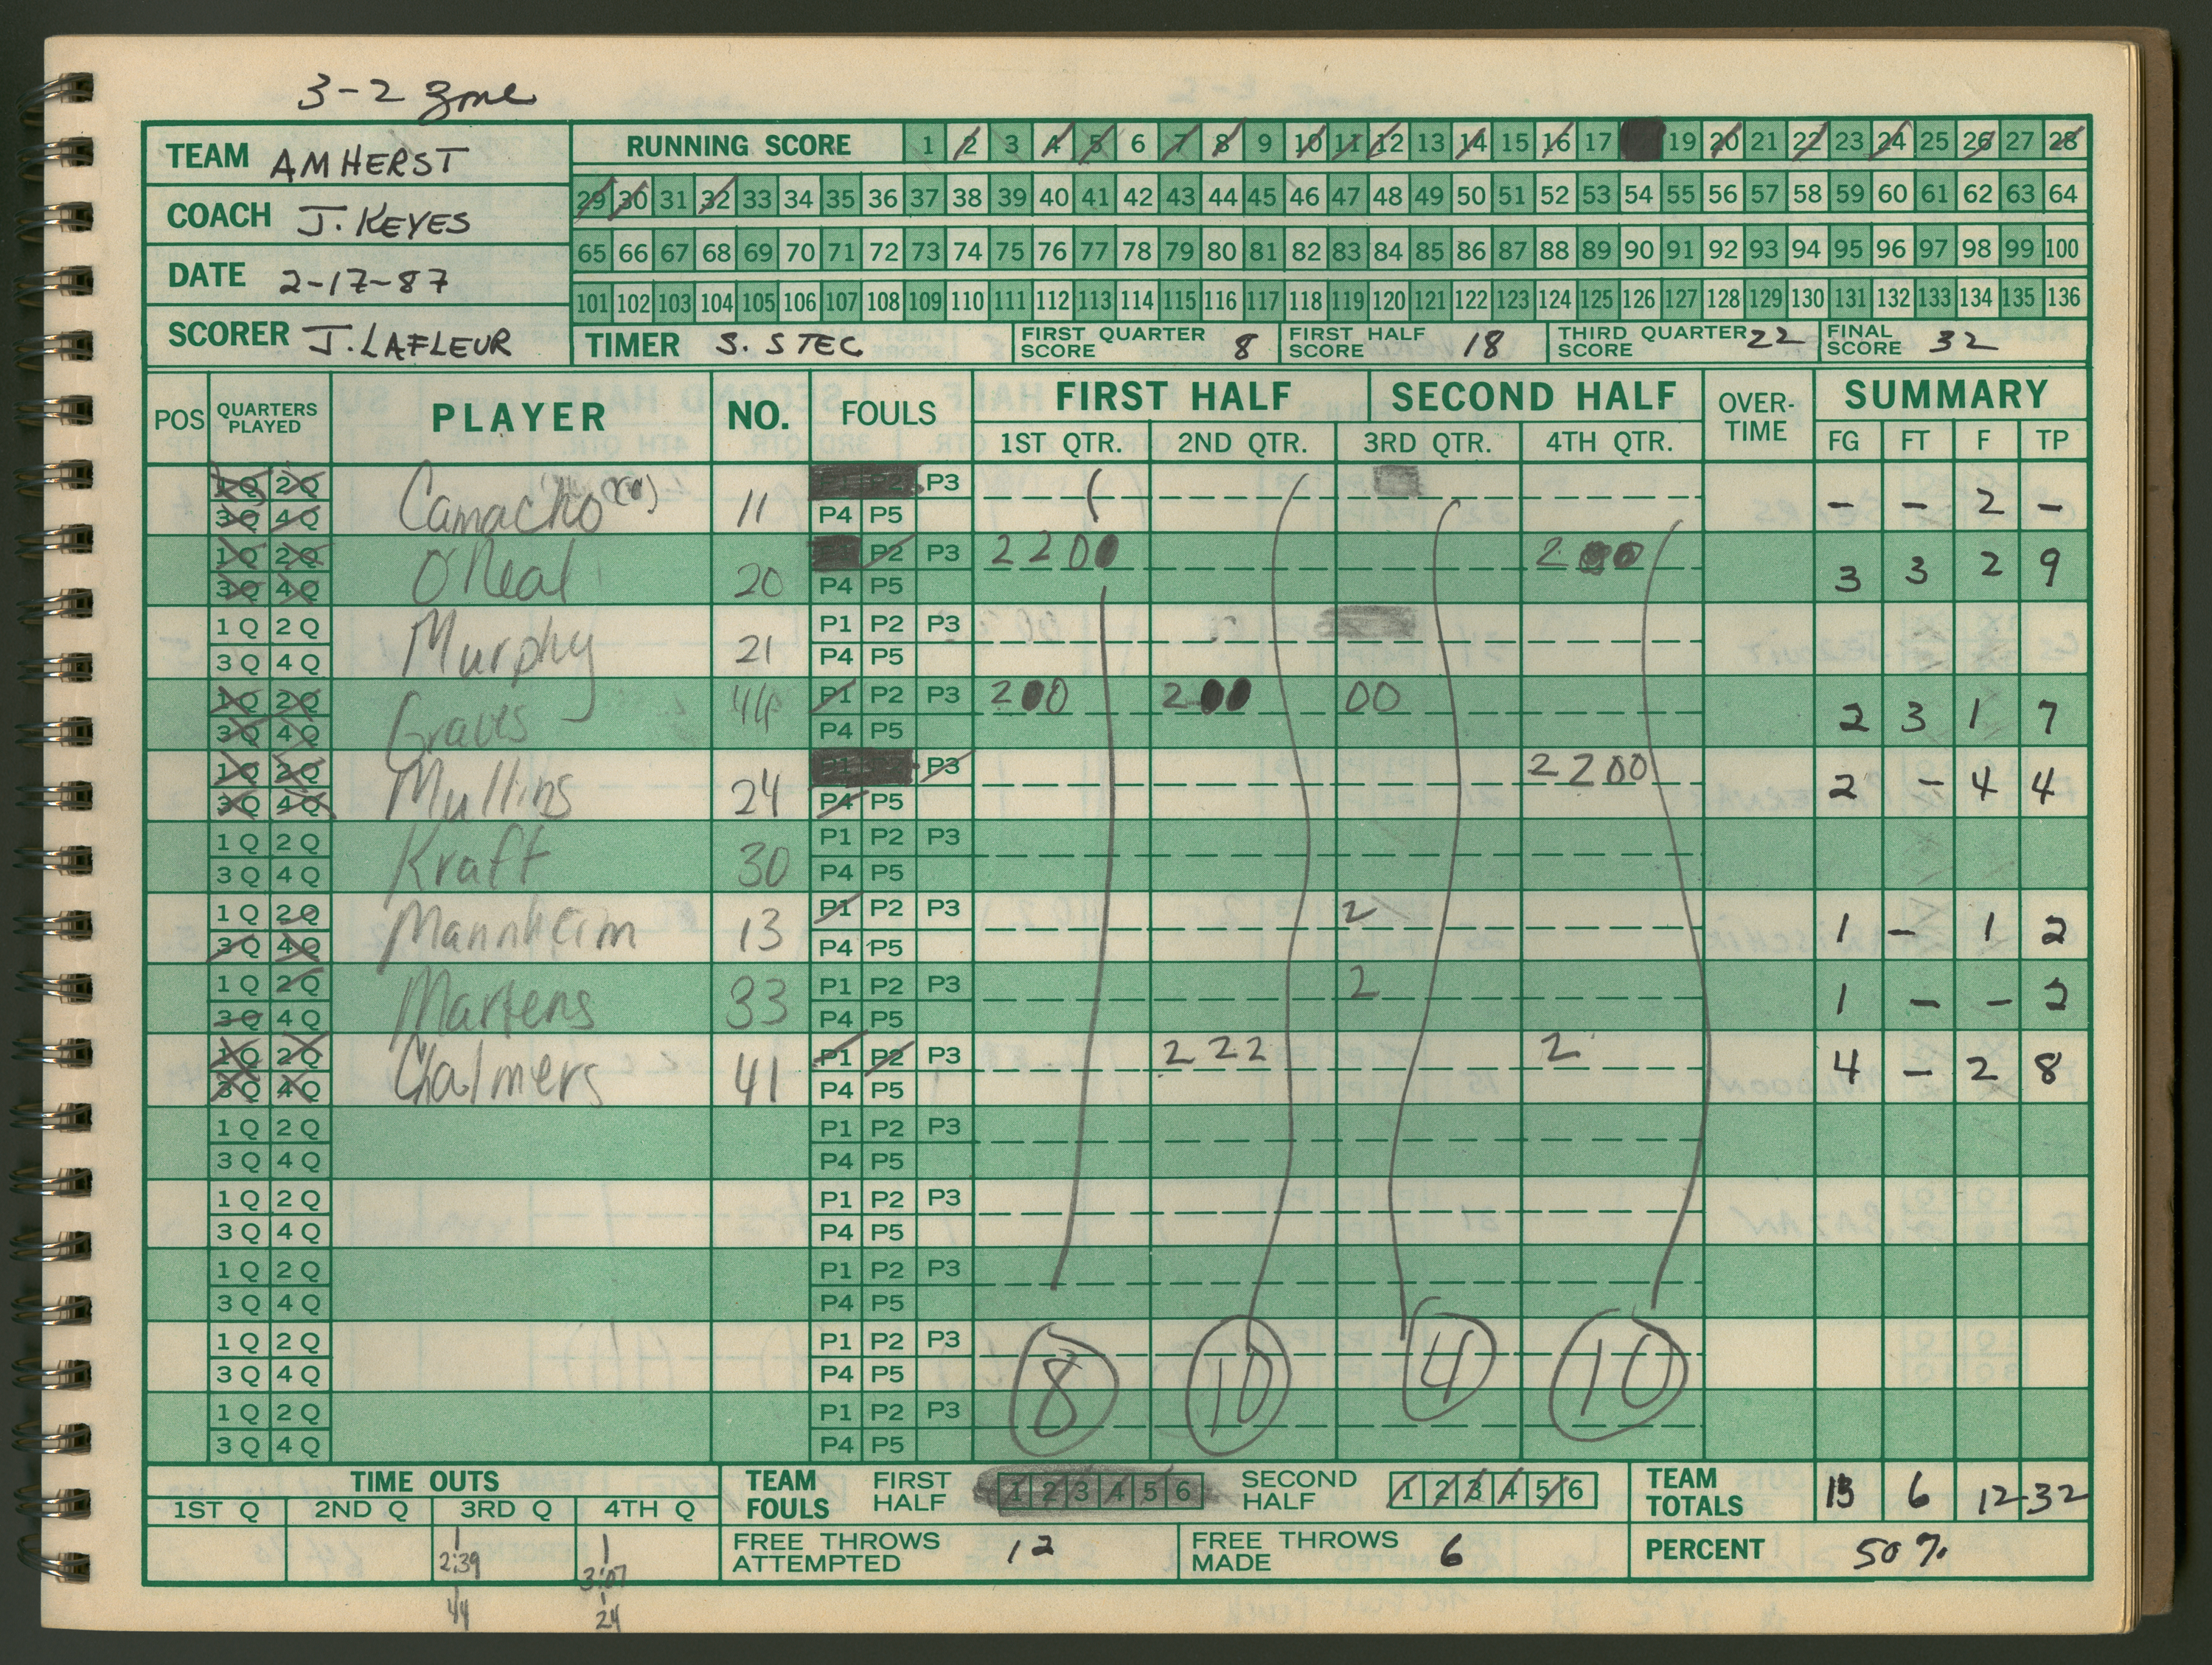 3-2 zone
TEAM AMHERST
COACH J. KEYES
DATE 2-17-87
SCORER J. LAFLEUR
RUNNING SCORE 1 2 3 4 5 6 7 8 9 10 11 12 13 14 15 16 17 19 20 21 22 23 24 25 26 27 28
29 30 31 32 33 34 35 36 37 38 39 40 41 42 43 44 45 46 47 48 49 50 51 52 53 54 55 56 57 58 59 60 61 62 63 64
65 66 67 68 69 70 71 72 73 74 75 76 77 78 79 80 81 82 83 84 85 86 87 88 89 90 91 92 93 94 95 96 97 98 99 100
101 102 103 104 105 106 107 108 109 110 111 112 113 114 115 116 117 118 119 120 121 122 123 124 125 126 127 128 129 130 131 132 133 134 135 136
TIMER S. STEC FIRST QUARTER SCORE 8 FIRST HALF SCORE 18 THIRD QUARTER SCORE 22 FINAL SCORE 32
POS QUARTERS PLAYED PLAYER NO. FOULS FIRST HALF SECOND HALF OVER-TIME SUMMARY
1ST QTR. 2ND QTR. 3RD QTR. 4TH QTR. FG FT F TP
1Q 2Q Camacho 11 P3 - - 2 -
3Q 4Q P4 P5
1Q 2Q O'Neal 20 P2 P3 2 2 0 0 2 0 0 3 3 2 9
3Q 4Q P4 P5
1Q 2Q Murphy 21 P1 P2 P3
3Q 4Q P4 P5
1Q 2Q Graves 44 P1 P2 P3 2 0 0 2 0 0 0 0 2 3 1 7
3Q 4Q P4 P5
1Q 2Q Mullins 24 P3 2 2 0 0 2 - 4 4
3Q 4Q P4 P5
1Q 2Q Kraft 30 P1 P2 P3
3Q 4Q P4 P5
1Q 2Q Mannheim 13 P1 P2 P3 2 1 - 1 2
3Q 4Q P4 P5
1Q 2Q Martens 33 P1 P2 P3 2 1 - - 2
3Q 4Q P4 P5
1Q 2Q Chalmers 41 P1 P2 P3 2 2 2 2 4 - 2 8
3Q 4Q P4 P5
1Q 2Q P1 P2 P3
3Q 4Q P4 P5
1Q 2Q P1 P2 P3
3Q 4Q P4 P5
1Q 2Q P1 P2 P3
3Q 4Q P4 P5
1Q 2Q P1 P2 P3 8 10 4 10
3Q 4Q P4 P5
1Q 2Q P1 P2 P3
3Q 4Q P4 P5
TIME OUTS TEAM FOULS FIRST HALF 1 2 3 4 5 6 SECOND HALF 1 2 3 4 5 6 TEAM TOTALS 13 6 12 32
1ST Q 2ND Q 3RD Q 4TH Q
FREE THROWS ATTEMPTED 12 FREE THROWS MADE 6 PERCENT 50%
1 1
2:39 3:07
44 24